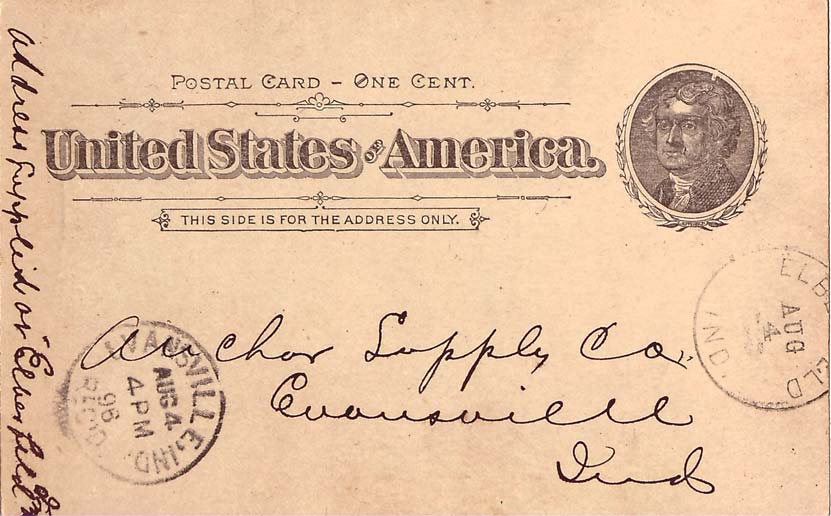 POSTAL CARD – ONE CENT.
United States OF America.
THIS SIDE IS FOR THE ADDRESS ONLY.
Anchor Supply Co.
Evansville
Ind
EVANSVILLE, IND.
AUG 4
4 PM
96
REC'D.
ELB LD
AUG
4
IND.
Address Supplied at Elberfeld